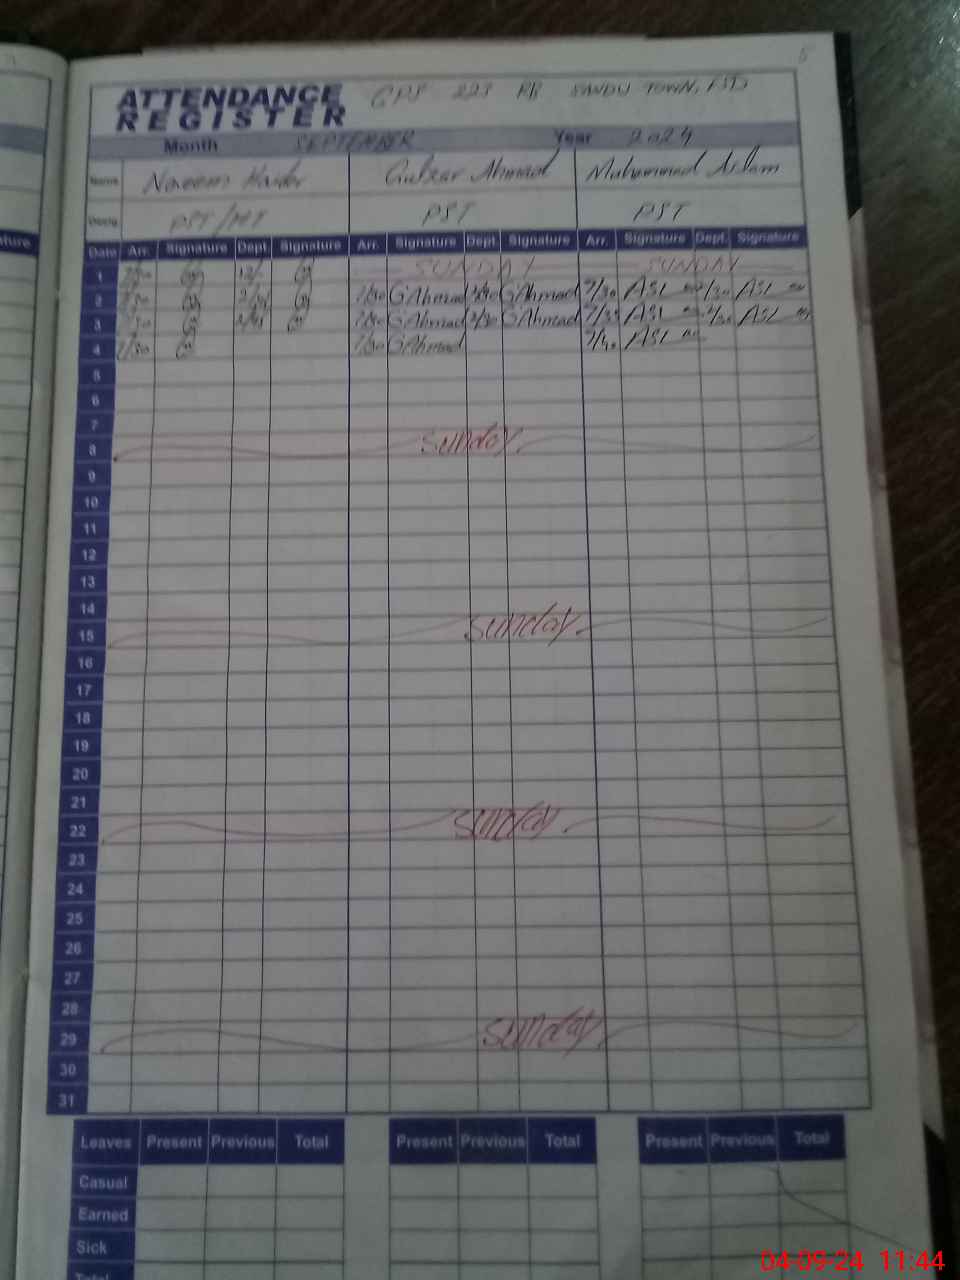 5
ATTENDANCE REGISTER GPS 223 RB SANDU TOWN, FSD
Month SEPTEMBER Year 2024
Name Naveem Haider Gulzar Ahmad Muhammad Aslam
PST/HT PST PST
Date Arr. Signature Dept. Signature Arr. Signature Dept. Signature Arr. Signature Dept. Signature
1 7/30 SUNDAY SUNDAY
2 7/30 7/30 GAhmad GAhmad 7/30 ASL ASL
3 7/30 7/30 GAhmad 2/30 GAhmad 7/35 ASL ASL
4 7/30 7/30 GAhmad 7/40 ASL
5
6
7
8 Sunday
9
10
11
12
13
14
15 Sunday
16
17
18
19
20
21
22 Sunday
23
24
25
26
27
28
29 Sunday
30
31
Leaves Present Previous Total Present Previous Total Present Previous Total
Casual
Earned
Sick
Total
04-09-24 11:44